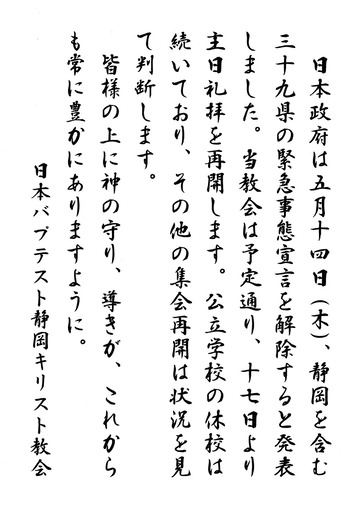 日本政府は五月十四日（木）、静岡を含む
三十九県の緊急事態宣言を解除すると発表
しました。当教会は予定通り、十七日より
主日礼拝を再開します。公立学校の休校は
続いており、その他の集会再開は状況を見
て判断します。
皆様の上に神の守り、導きが、これから
も常に豊かにありますように。
日本バプテスト静岡キリスト教会